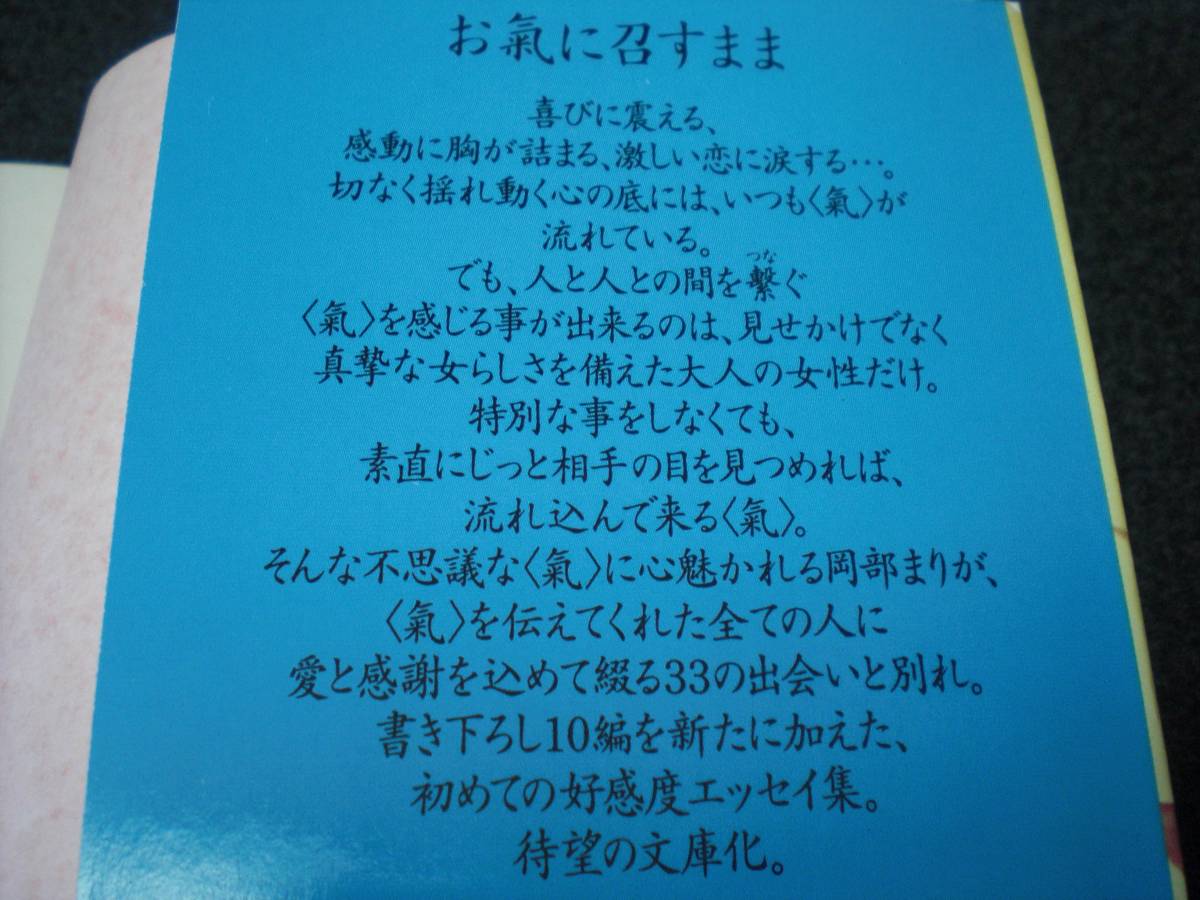 お氣に召すまま
喜びに震える、
感動に胸が詰まる、激しい恋に涙する…。
切なく揺れ動く心の底には、いつも〈氣〉が
流れている。
でも、人と人との間を繫ぐ
つな
〈氣〉を感じる事が出来るのは、見せかけでなく
真摯な女らしさを備えた大人の女性だけ。
特別な事をしなくても、
素直にじっと相手の目を見つめれば、
流れ込んで来る〈氣〉。
そんな不思議な〈氣〉に心魅かれる岡部まりが、
〈氣〉を伝えてくれた全ての人に
愛と感謝を込めて綴る33の出会いと別れ。
書き下ろし10編を新たに加えた、
初めての好感度エッセイ集。
待望の文庫化。